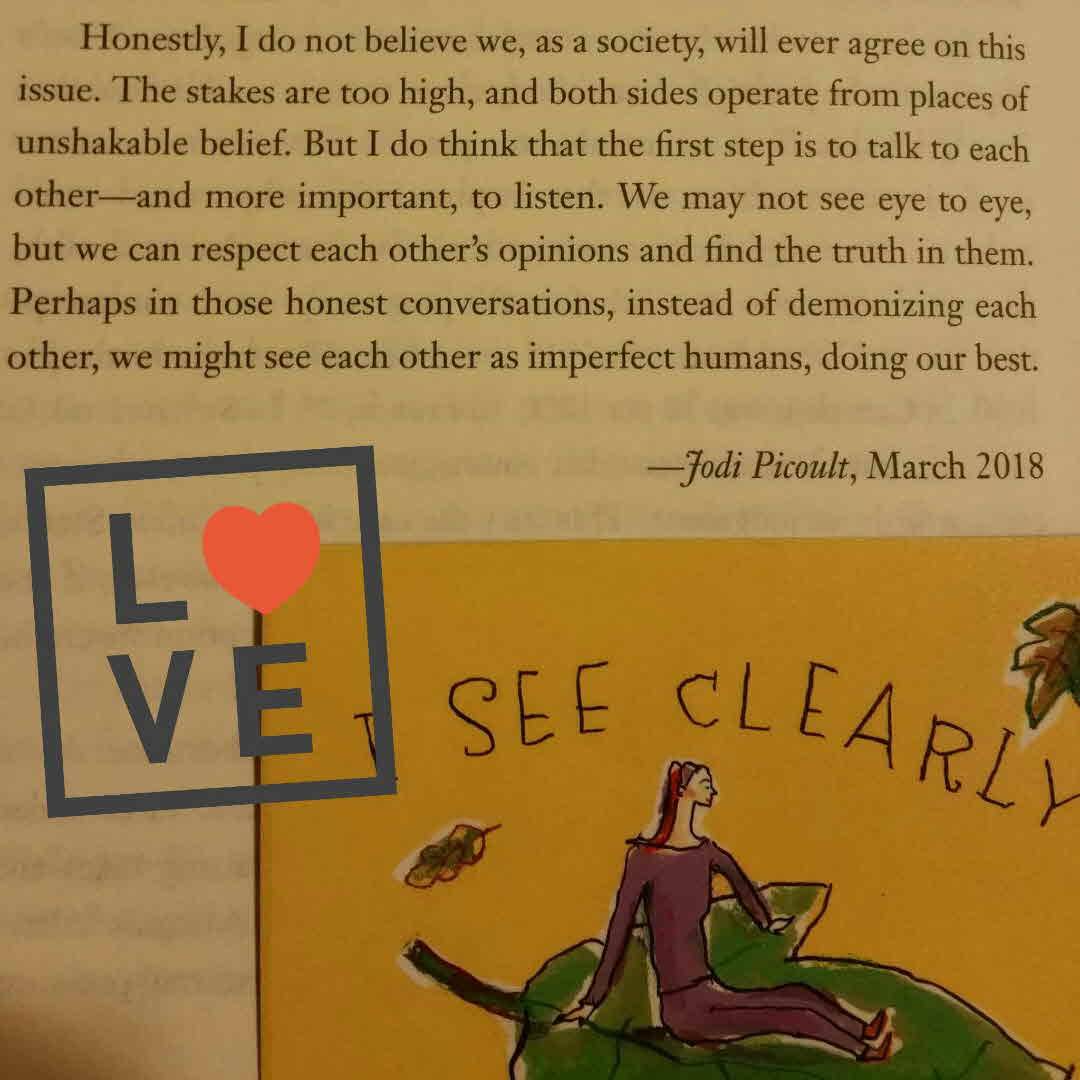 Honestly, I do not believe we, as a society, will ever agree on this
issue. The stakes are too high, and both sides operate from places of
unshakable belief. But I do think that the first step is to talk to each
other—and more important, to listen. We may not see eye to eye,
but we can respect each other's opinions and find the truth in them.
Perhaps in those honest conversations, instead of demonizing each
other, we might see each other as imperfect humans, doing our best.
—Jodi Picoult, March 2018
L
VE
I SEE CLEARLY